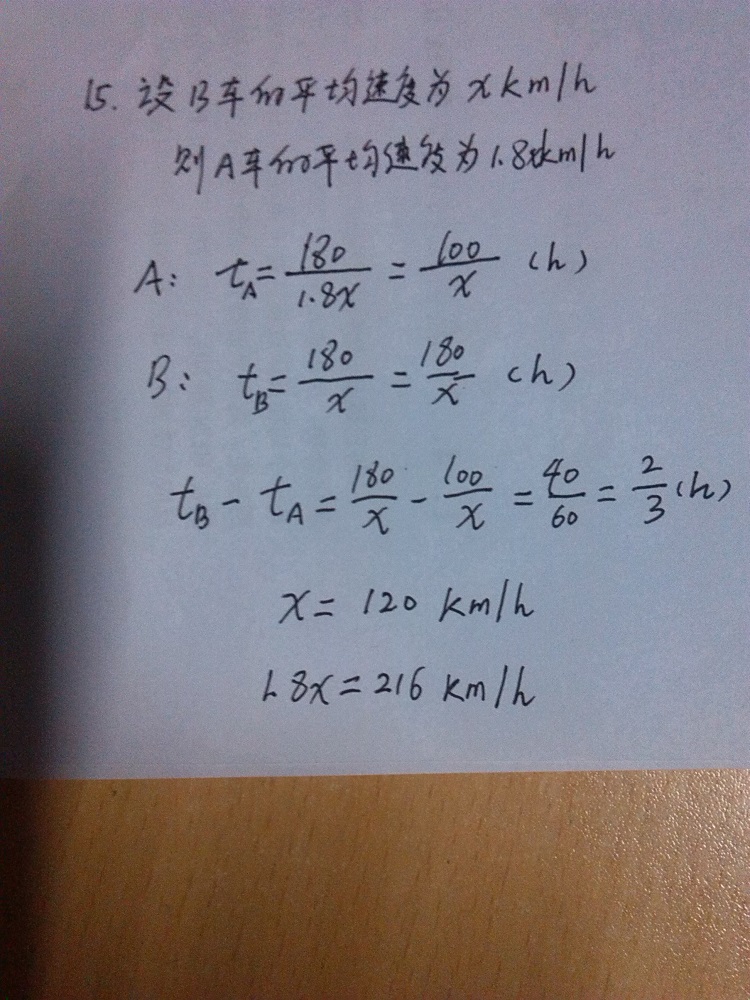 15. 设B车的平均速度为 x km/h
则A车的平均速度为1.8xkm/h
A: t_A = 180/1.8x = 100/x (h)
B: t_B = 180/x = 180/x (h)
t_B - t_A = 180/x - 100/x = 40/60 = 2/3 (h)
x = 120 km/h
1.8x = 216 km/h